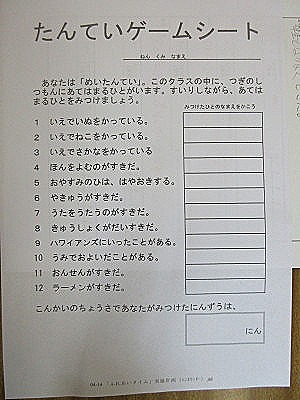 たんていゲームシート
ねん　くみ　なまえ
あなたは「めいたんてい」。このクラスの中に、つぎのし
つもんにあてはまるひとがいます。すいりしながら、あては
まるひとをみつけましょう。
みつけたひとのなまえをかこう
1　いえでいぬをかっている。
2　いえでねこをかっている。
3　いえでさかなをかっている
4　ほんをよむのがすきだ。
5　おやすみのひは、はやおきする。
6　やきゅうがすきだ。
7　うたをうたうのがすきだ。
8　きゅうしょくがだいすきだ。
9　ハワイアンズにいったことがある。
10　うみでおよいだことがある。
11　おんせんがすきだ。
12　ラーメンがすきだ。
こんかいのちょうさであなたがみつけたにんずうは、
にん
04-14 「ふれあいタイム」実施計画